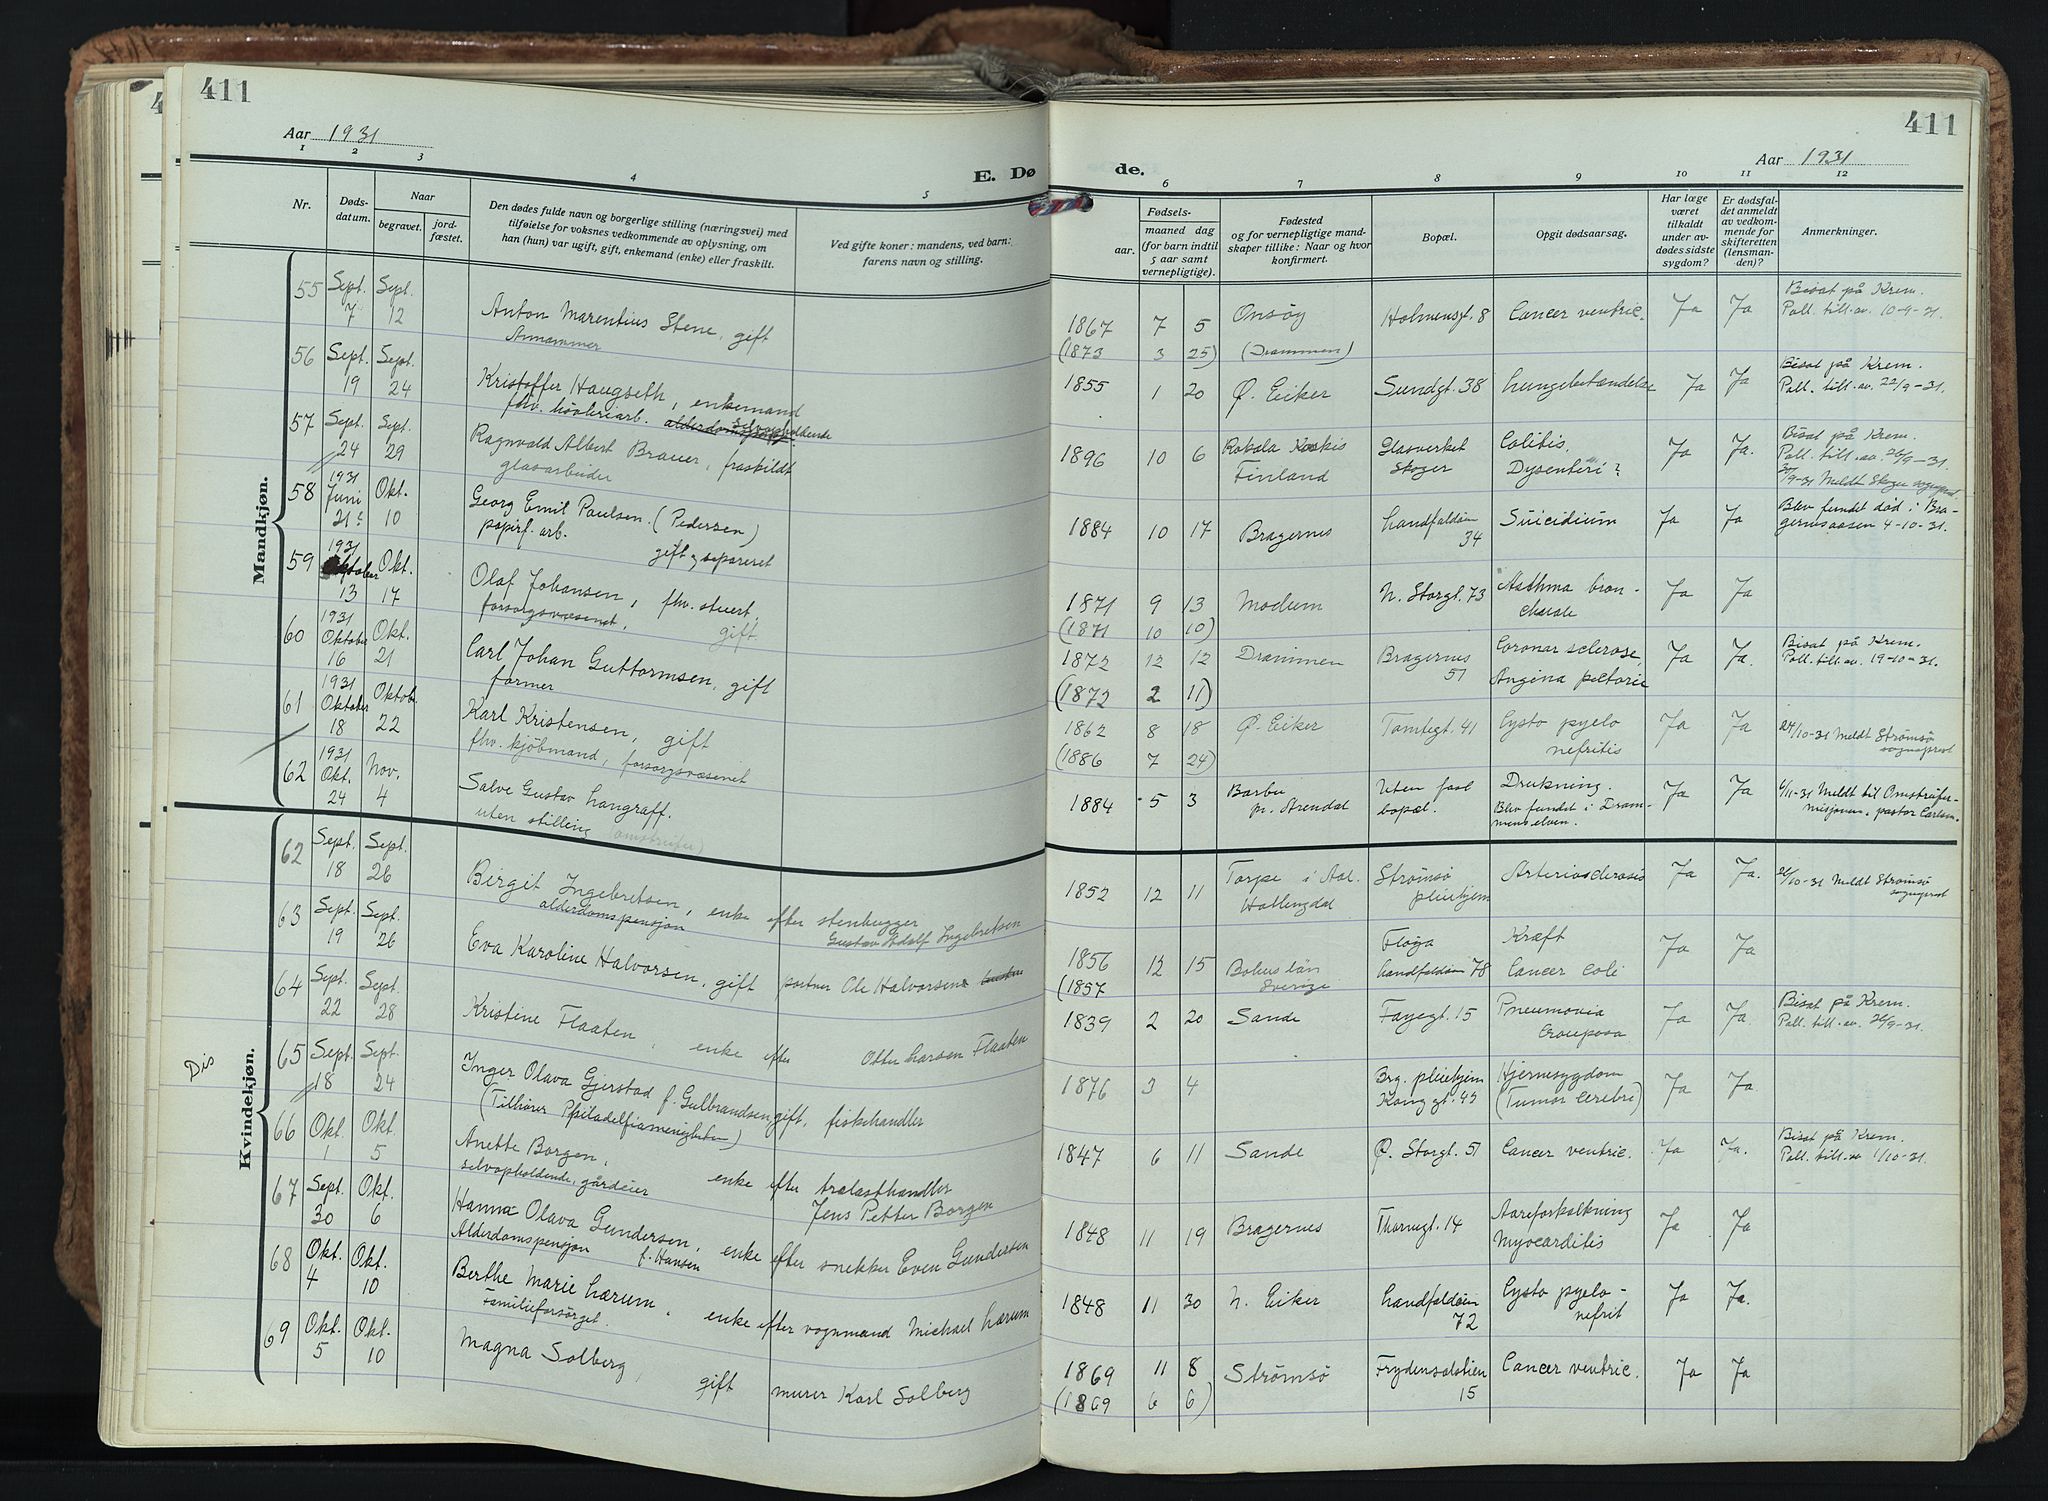 411
Aar 1931
1 2 3 4 5
E. Dø
Nr.
Døds-
datum.
Naar
begravet.
jord-
fæstet.
Den dødes fulde navn og borgerlige stilling (næringsvei) med
tilføielse for voksnes vedkommende av oplysning, om
han (hun) var ugift, gift, enkemand (enke) eller fraskilt.
Ved gifte koner: mandens, ved barn:
farens navn og stilling.
Mandkjøn.
55 Sept. 7 Sept. 12
Anton Marentius Stene, gift
56 Sept. 19 Sept. 24
Kristoffer Haugseth, enkemand
fhv. høvleriarb. selvopholdende
57 Sept. 24 Sept. 29
Ragnvald Albert Brauer, fraskildt
glasarbeider
58 1931 Juni 21 Okt. 10
Georg Emil Paulsen. (Pedersen)
papirf. arb.
gift, separeret
59 1931 Oktober 13 Okt. 17
Olaf Johansen, fhv. stuert,
forsorgsvæsenet, gift
60 1931 Oktober 16 Okt. 21
Carl Johan Guttormsen, gift
former
61 1931 Oktober 18 Oktob. 22
Karl Kristensen, gift
fhv. kjöbmand, forsorgsvæsenet
62 1931 Okt. 24 Nov. 4
Salve Gustav Langraff.
uten stilling (omstreifer)
Kvindekjøn.
62 Sept. 18 Sept. 26
Birgit Ingebretsen, enke efter stenhugger
alderdomspensjon Gustav Adolf Ingebretsen
63 Sept. 19 Sept. 26
Eva Karoline Halvorsen, gift portner Ole Halvorsen
64 Sept. 22 Sept. 28
Kristine Flaaten, enke efter Otter Larsen Flaaten
Dis
65 Sept. 18 Sept. 24
Inger Olava Gjerstad f. Gulbrandsen, gift, fiskehandler
(Tilhører Philadelfiamenigheten)
66 Okt. 1 Okt. 5
Anette Borgen,
selvopholdende, gårdeier enke efter trælasthandler
Jens Petter Borgen
67 Sept. 30 Okt. 6
Hanna Olava Gundersen, enke efter snekker Even Gundersen
Alderdomspensjon f. Hansen
68 Okt. 4 Okt. 10
Berthe Marie Lærum, enke efter vognmand Michael Lærum
Familieforsörget.
69 Okt. 5 Okt. 10
Magna Solberg, gift murer Karl Solberg
411
Aar 1931
de.
6 7 8 9 10 11 12
Fødsels-
aar.
maaned dag
(for barn indtil
5 aar samt
vernepligtige).
Fødested
og for vernepligtige mand-
skaper tillike: Naar og hvor
konfirmert.
Bopæl.
Opgit dødsaarsag.
Har læge
været
tilkaldt
under av-
dødes sidste
sygdom?
Er dødsfal-
det anmeldt
av vedkom-
mende for
skifteretten
(lensman-
den)?
Anmerkninger.
1867 7 5 Onsöy Holmensgt. 8 Cancer ventric. Ja Ja Bisat på Krem.
Poll. till. av. 10-9-31.
(1873 3 25) (Drammen)
1855 1 20 Ø. Eiker Sundgt. 38 Lungebetændelse Ja Ja Bisat på Krem.
Poll. till. av. 22/9-31.
1896 10 6 Rokala Koskis Finland Glasverket Skoger Colitis, Dysenteri? Ja Ja. Bisat på Krem.
Poll. till. av. 26/9-31.
30/9-31 Meldt Skoger sogneprest.
1884 10 17 Bragernes Landfaldöen 34 Suicidium Ja Ja Blev fundet död i Bra-
gernesaasen 4-10-31.
1871 9 13 Modum N. Storgt. 73 Asthma bron-
chiale Ja Ja
(1871 10 10)
1872 12 12 Drammen Bragernes 51 Coronar sclerose,
Angina pectoris Ja Ja. Bisat på Krem.
Poll. till. av. 19-10-31.
(1872 2 11)
1862 8 18 Ø. Eiker Tomtegt. 41 Cysto pyelo
nefritis Ja Ja 24/10-31 Meldt Strømsø
sogneprest
(1886 7 24)
1884 5 3 Barbu
pr. Arendal Uten fast
bopæl. Drukning.
Blev fundet i Dram-
menselven. Ja Ja 6/11-31 Meldt til Omstreifer-
misjonen, pastor Carlsen.
1852 12 11 Torpe i Aal.
Hallingdal Strømsø
pleiehjem Arteriosclerosis Ja Ja. 26/10-31 Meldt Strømsø
sogneprest
1856 12 15 Bohus län
Sverige Fløya
Landfaldöen 78 Kræft
Cancer coli Ja Ja
(1857
1839 2 20 Sande Fayegt. 15 Pneumonia
Crouposa Ja Ja. Bisat på Krem.
Poll. till. av. 26/9-31.
1876 3 4 Brg. pleiehjem
Konggt. 45 Hjernesygdom
(Tumor Cerebri) Ja Ja.
1847 6 11 Sande Ø. Storgt. 51 Cancer ventric. Ja Ja. Bisat på Krem.
Poll. till. av 1/10-31.
1848 11 19 Bragernes Thornegt. 14 Aareforkalkning
Myocarditis Ja Ja
1848 11 30 N. Eiker Landfaldöen
72 Cysto pyelo-
nefrit Ja Ja.
1869 11 8 Strømsø Frydensalslien
15 Cancer ventric. Ja Ja
(1869 6 6)